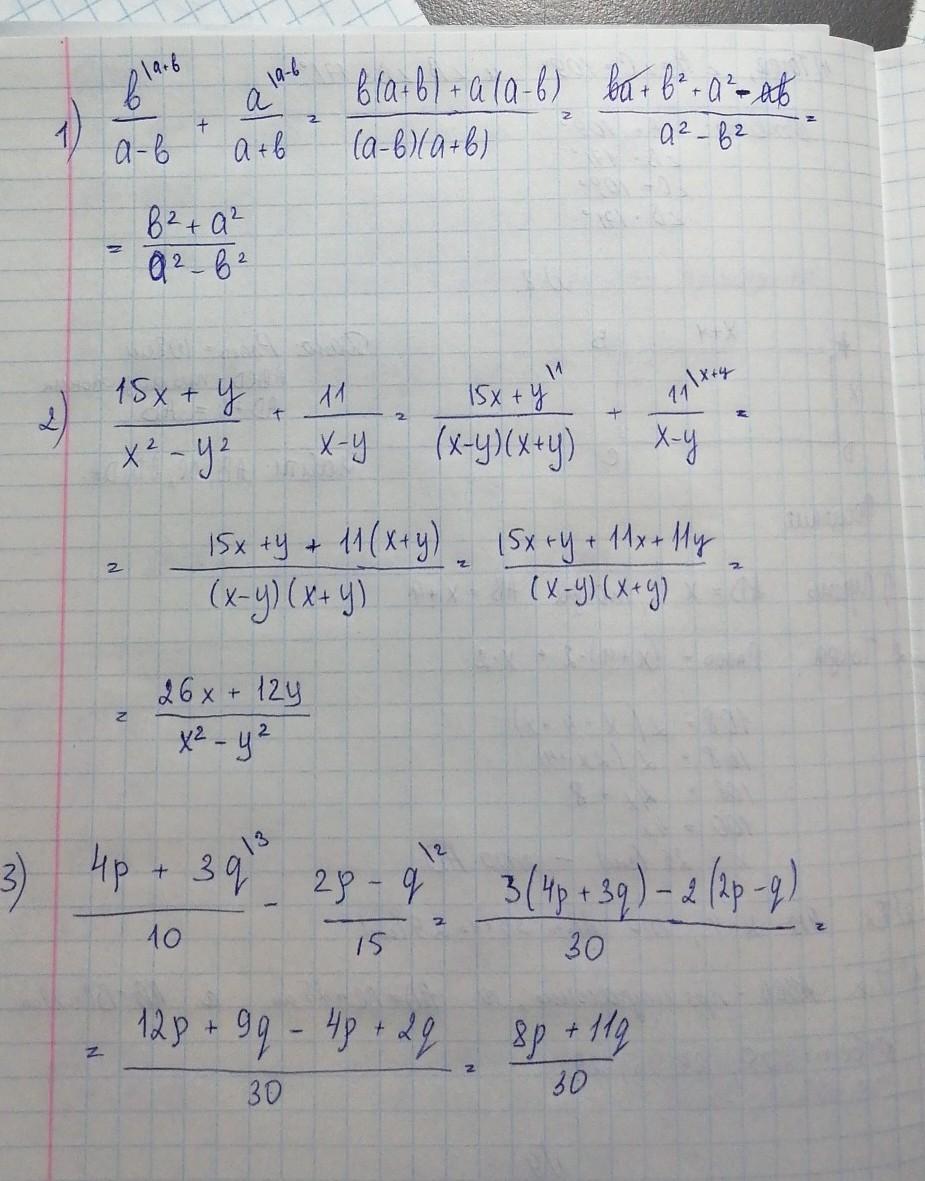 1) в\a+в / a-в + a\a-в / a+в = в(a+в) + a(a-в) / (a-в)(a+в) = вa + в² + a² - aв / a² - в² =
= в² + a² / a² - в²
2) 15x + y / x² - y² + 11 / x-y = 15x + y\1 / (x-y)(x+y) + 11\x+y / x-y =
= 15x + y + 11(x+y) / (x-y)(x+y) = 15x+y + 11x+11y / (x-y)(x+y) =
= 26x + 12y / x² - y²
3) 4p + 3q\3 / 10 - 2p - q\2 / 15 = 3(4p+3q) - 2(2p-q) / 30 =
= 12p + 9q - 4p + 2q / 30 = 8p + 11q / 30